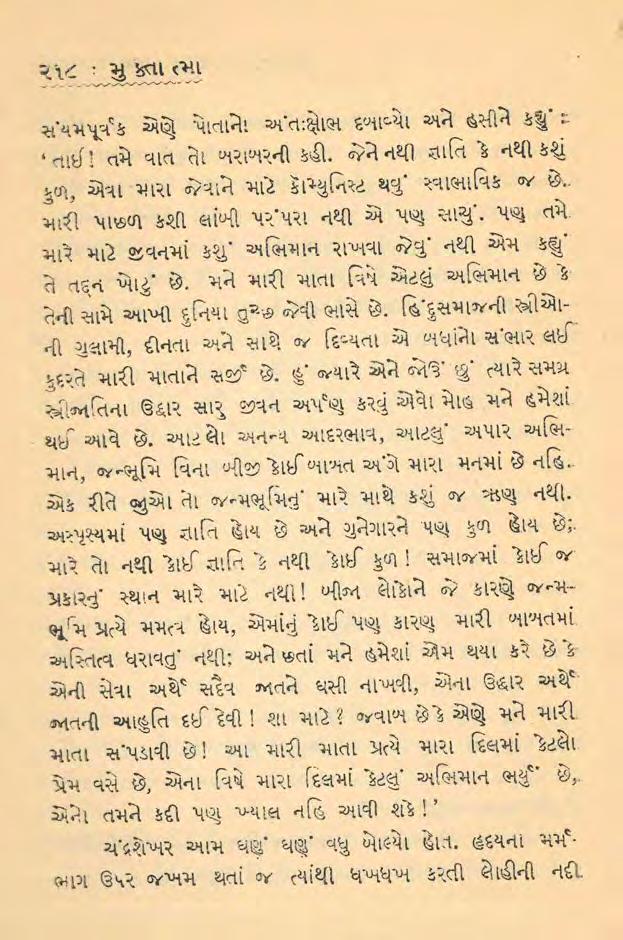 ૨૧૮ : મુક્તાત્મા
સંયમપૂર્વક એણે પોતાનો અંતઃક્ષોભ દબાવ્યો અને હસીને કહ્યું :
‘તાઈ! તમે વાત તો બરાબરની કહી. જેને નથી જ્ઞાતિ કે નથી કશું
કુળ, એવા મારા જેવાને માટે કૉમ્યુનિસ્ટ થવું સ્વાભાવિક જ છે.
મારી પાછળ કશી લાંબી પરંપરા નથી એ પણ સાચું. પણ તમે
મારે માટે જીવનમાં કશું અભિમાન રાખવા જેવું નથી એમ કહ્યું
તે તદ્દન ખોટું છે. મને મારી માતા વિષે એટલું અભિમાન છે કે
તેની સામે આખી દુનિયા તુચ્છ જેવી ભાસે છે. હિંદુસમાજની સ્ત્રીઓ-
ની ગુલામી, દીનતા અને સાથે જ દિવ્યતા એ બધાંનો સંભાર લઈ
કુદરતે મારી માતાને સર્જી છે. હું જ્યારે એને જોઉં છું ત્યારે સમગ્ર
સ્ત્રીજાતિના ઉદ્ધાર સારુ જીવન અર્પણ કરવું એવો મોહ મને હમેશાં
થઈ આવે છે. આટલો અનન્ય આદરભાવ, આટલું અપાર અભિ-
માન, જન્ભૂમિ વિના બીજી કોઈ બાબત અંગે મારા મનમાં છે નહિ.
એક રીતે જુઓ તો જન્મભૂમિનું મારે માથે કશું જ ઋણ નથી.
અસ્પૃશ્યમાં પણ જ્ઞાતિ હોય છે અને ગુનેગારને પણ કુળ હોય છે;
મારે તો નથી કોઈ જ્ઞાતિ કે નથી કોઈ કુળ! સમાજમાં કોઈ જ
પ્રકારનું સ્થાન મારે માટે નથી! બીજા લોકોને જે કારણે જન્મ-
ભૂમિ પ્રત્યે મમત્વ હોય, એમાંનું કોઈ પણ કારણ મારી બાબતમાં
અસ્તિત્વ ધરાવતું નથી; અને છતાં મને હમેશાં એમ થયા કરે છે કે
એની સેવા અર્થે સદૈવ જાતને ઘસી નાખવી, એના ઉદ્ધાર અર્થે
જાતની આહુતિ દઈ દેવી! શા માટે? જવાબ છે કે એણે મને મારી
માતા સંપડાવી છે! આ મારી માતા પ્રત્યે મારા દિલમાં કેટલો
પ્રેમ વસે છે, એના વિષે મારા દિલમાં કેટલું અભિમાન ભર્યું છે,
એનો તમને કદી પણ ખ્યાલ નહિ આવી શકે!’
ચંદ્રશેખર આમ ઘણું ઘણું વધુ બોલ્યો હોત. હૃદયના મર્મ-
ભાગ ઉપર જખમ થતાં જ ત્યાંથી ધખધખ કરતી લોહીની નદી